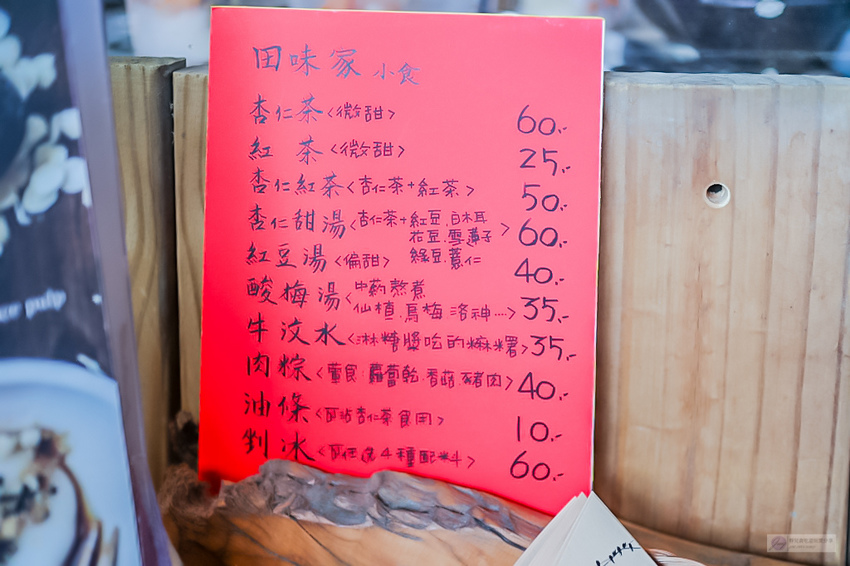 田味家 小食
杏仁茶<微甜> 60.-
紅 茶<微甜> 25.-
杏仁紅茶<杏仁茶+紅茶> 50.-
杏仁甜湯<杏仁茶+紅豆.白木耳 60.-
花豆.雪蓮子>
綠豆.薏仁
紅豆湯<偏甜> 40.-
酸梅湯<中葯熬煮 35.-
仙楂.烏梅.洛神....>
牛汶水<淋糖漿吃的麻糬> 35.-
肉粽<葷食.蘿蔔乾.香菇.豬肉> 40.-
油條<可沾杏仁茶食用> 10.-
剉冰<可任選4種配料> 60.-
pulp